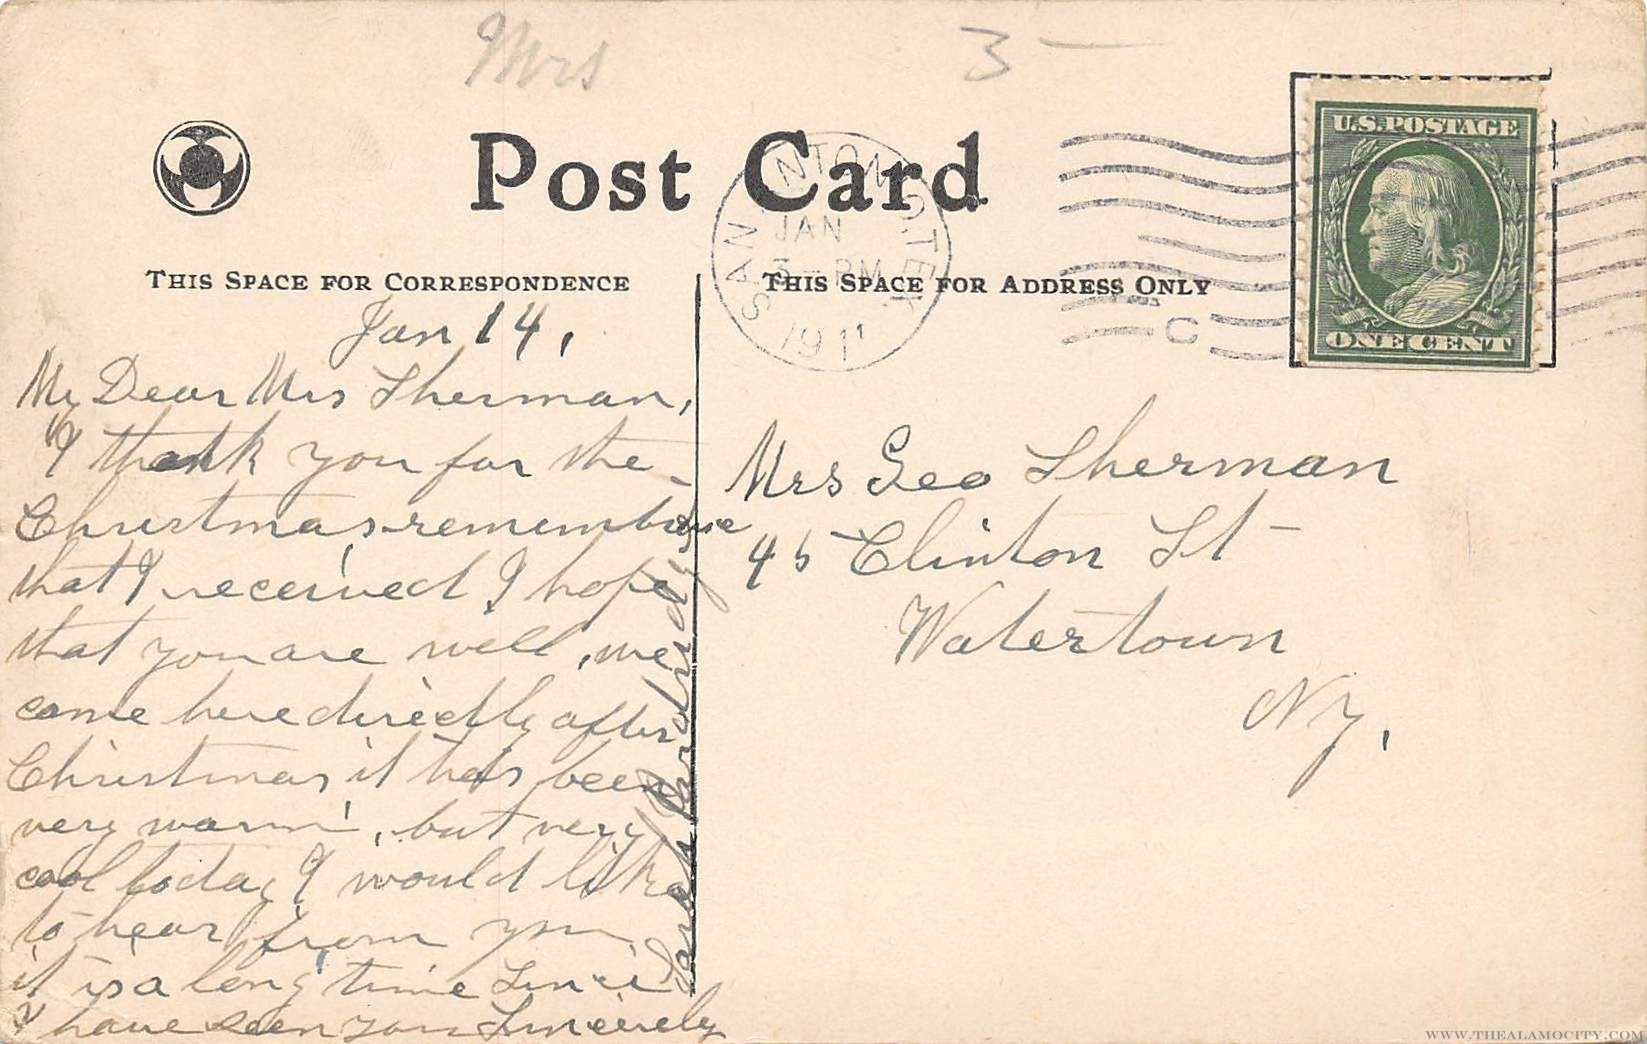 Mrs
3 —
Post Card
THIS SPACE FOR CORRESPONDENCE
THIS SPACE FOR ADDRESS ONLY
SAN ANTONIO, TEX.
JAN
3 - PM
1911
C
U.S. POSTAGE
ONE CENT
Jan 14,
My Dear Mrs Sherman,
I thank you for the
Christmas remembrance
that I received I hope
that you are well, we
came here directly after
Christmas it has been
very warm, but very
cool today I would like
to hear from you
it is a long time Since
I have seen you Sincerely
Sarah
Mrs Geo Sherman
45 Clinton St
Watertown
NY,
WWW.THEALAMOCITY.COM